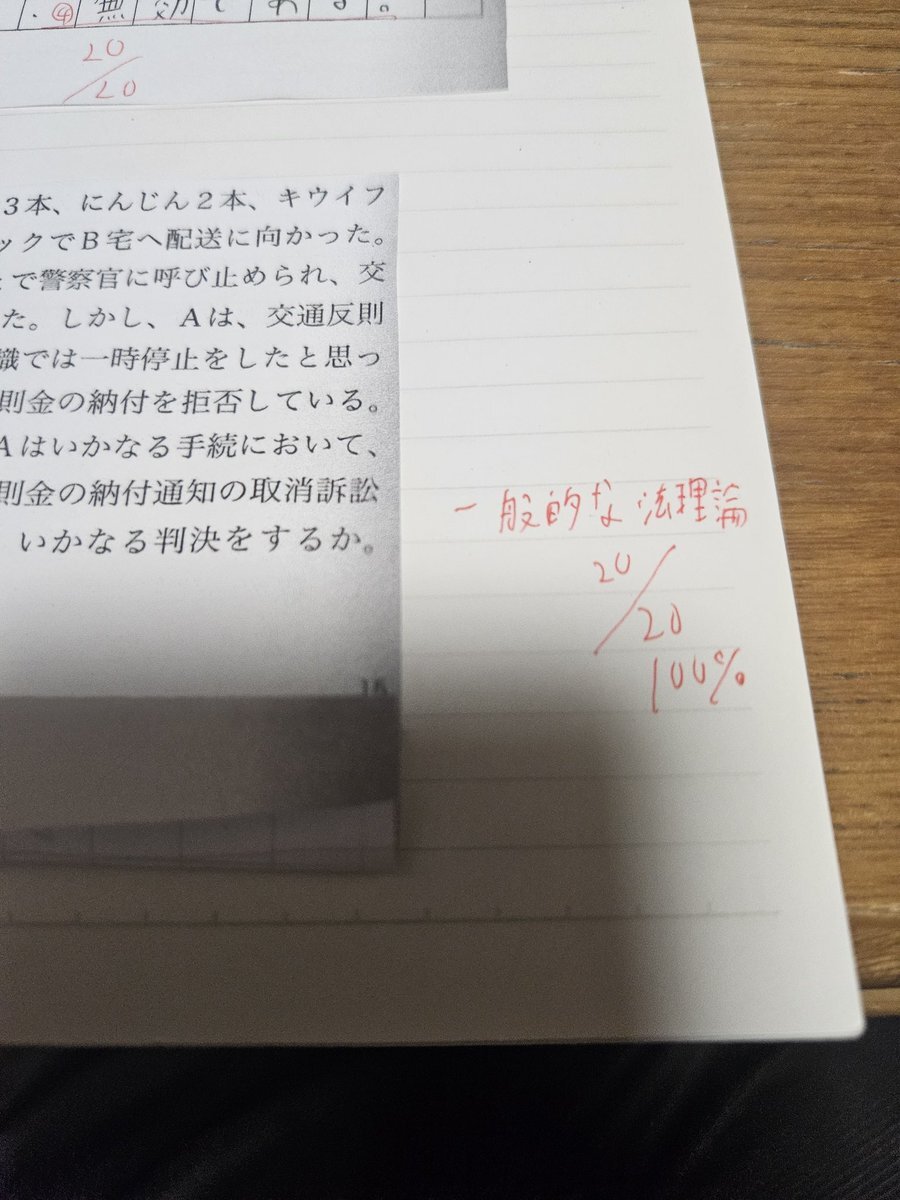 .④無効である。
20/20
3本、にんじん2本、キウイフ
ックでB宅へ配送に向かった。
で警察官に呼び止められ、交
た。しかし、Aは、交通反則
識では一時停止をしたと思っ
則金の納付を拒否している。
Aはいかなる手続において、
則金の納付通知の取消訴訟
いかなる判決をするか。
一般的な法理論
20/20
100%